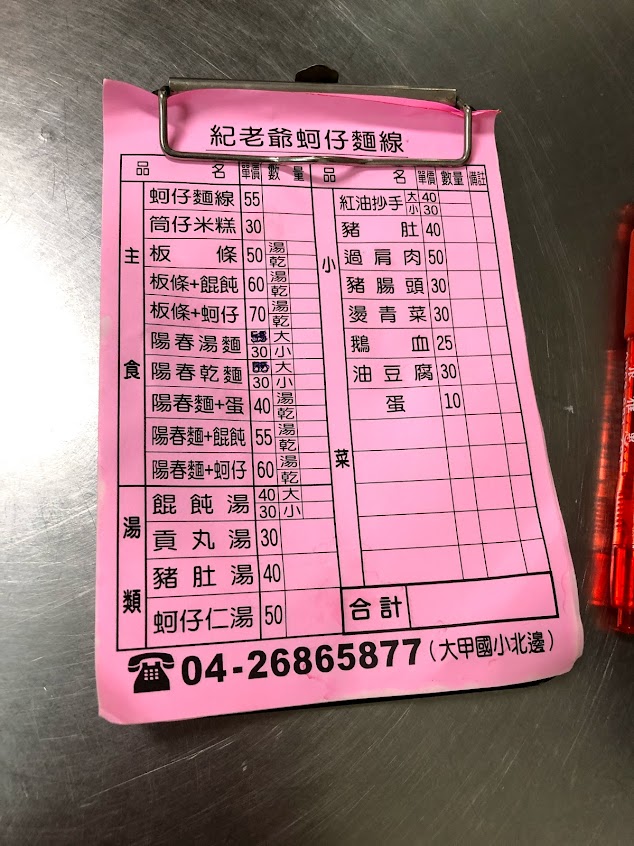 紀老爺蚵仔麵線
品名 單價 數量 品名 單價 數量 備註
主食
蚵仔麵線 55
筒仔米糕 30
板條 50 湯 乾
板條+餛飩 60 湯 乾
板條+蚵仔 70 湯 乾
陽春湯麵 大 30 小
陽春乾麵 大 30 小
陽春麵+蛋 40 湯 乾
陽春麵+餛飩 55 湯 乾
陽春麵+蚵仔 60 湯 乾
湯類
餛飩湯 40 大 30 小
貢丸湯 30
豬肚湯 40
蚵仔仁湯 50
小菜
紅油抄手 大 40 小 30
豬肚 40
過肩肉 50
豬腸頭 30
燙青菜 30
鵝血 25
油豆腐 30
蛋 10
合計
04-26865877(大甲國小北邊)